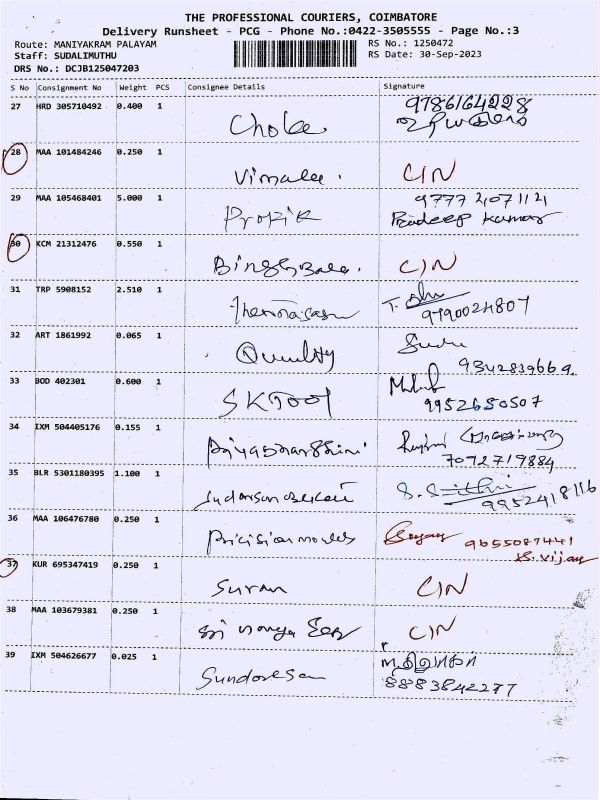 THE PROFESSIONAL COURIERS, COIMBATORE
Delivery Runsheet - PCG - Phone No.:0422-3505555 - Page No.:3
Route: MANIYAKRAM PALAYAM
RS No.: 1250472
Staff: SUDALIMUTHU
RS Date: 30-Sep-2023
DRS No.: DCJB125047203
S No Consignment No Weight PCS Consignee Details Signature
27 HRD 305710492 0.400 1 9786164228
28 MAA 101484246 0.250 1 Vimala. CIN
29 MAA 105468401 5.000 1 9777 207112
Pradeep Kumar
30 KCM 21312476 0.550 1 CIN
31 TRP 5908152 2.510 1 9790024807
32 ART 1861992 0.065 1 Quality
9342839669
33 BOD 402301 0.600 1 SKTool
9952650507
34 IXM 504405176 0.155 1 Priyadharshini
7092719884
35 BLR 5301180395 1.100 1
9952418116
36 MAA 106476780 0.250 1 9655087441
S. Vijay
37 KUR 695347419 0.250 1 Suran CIN
38 MAA 103679381 0.250 1 CIN
39 IXM 504626677 0.025 1 Sundaresan
8883842277